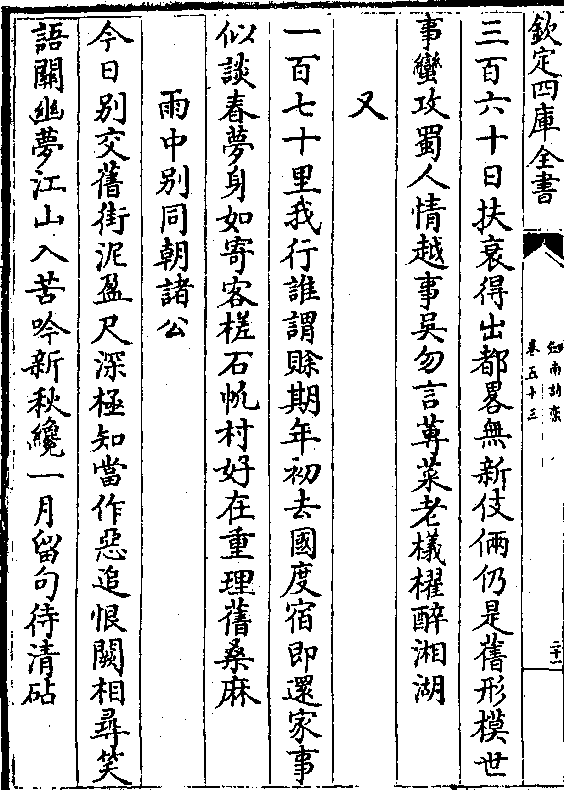 欽定四庫全書
劒南詩稾
卷五十三
二十一
三百六十日扶衰得出都畧無新伎倆仍是舊形模世
事蠻攻蜀人情越事吳勿言蓴菜老檥櫂醉湘湖
又
一百七十里我行誰謂賖期年初去國度宿即還家事
似談春夢身如寄客槎石帆村好在重理舊桑麻
雨中別同朝諸公
今日別交舊街泥盈尺深極知當作惡追恨闕相尋笑
語關幽夢江山入苦吟新秋纔一月留句待清砧